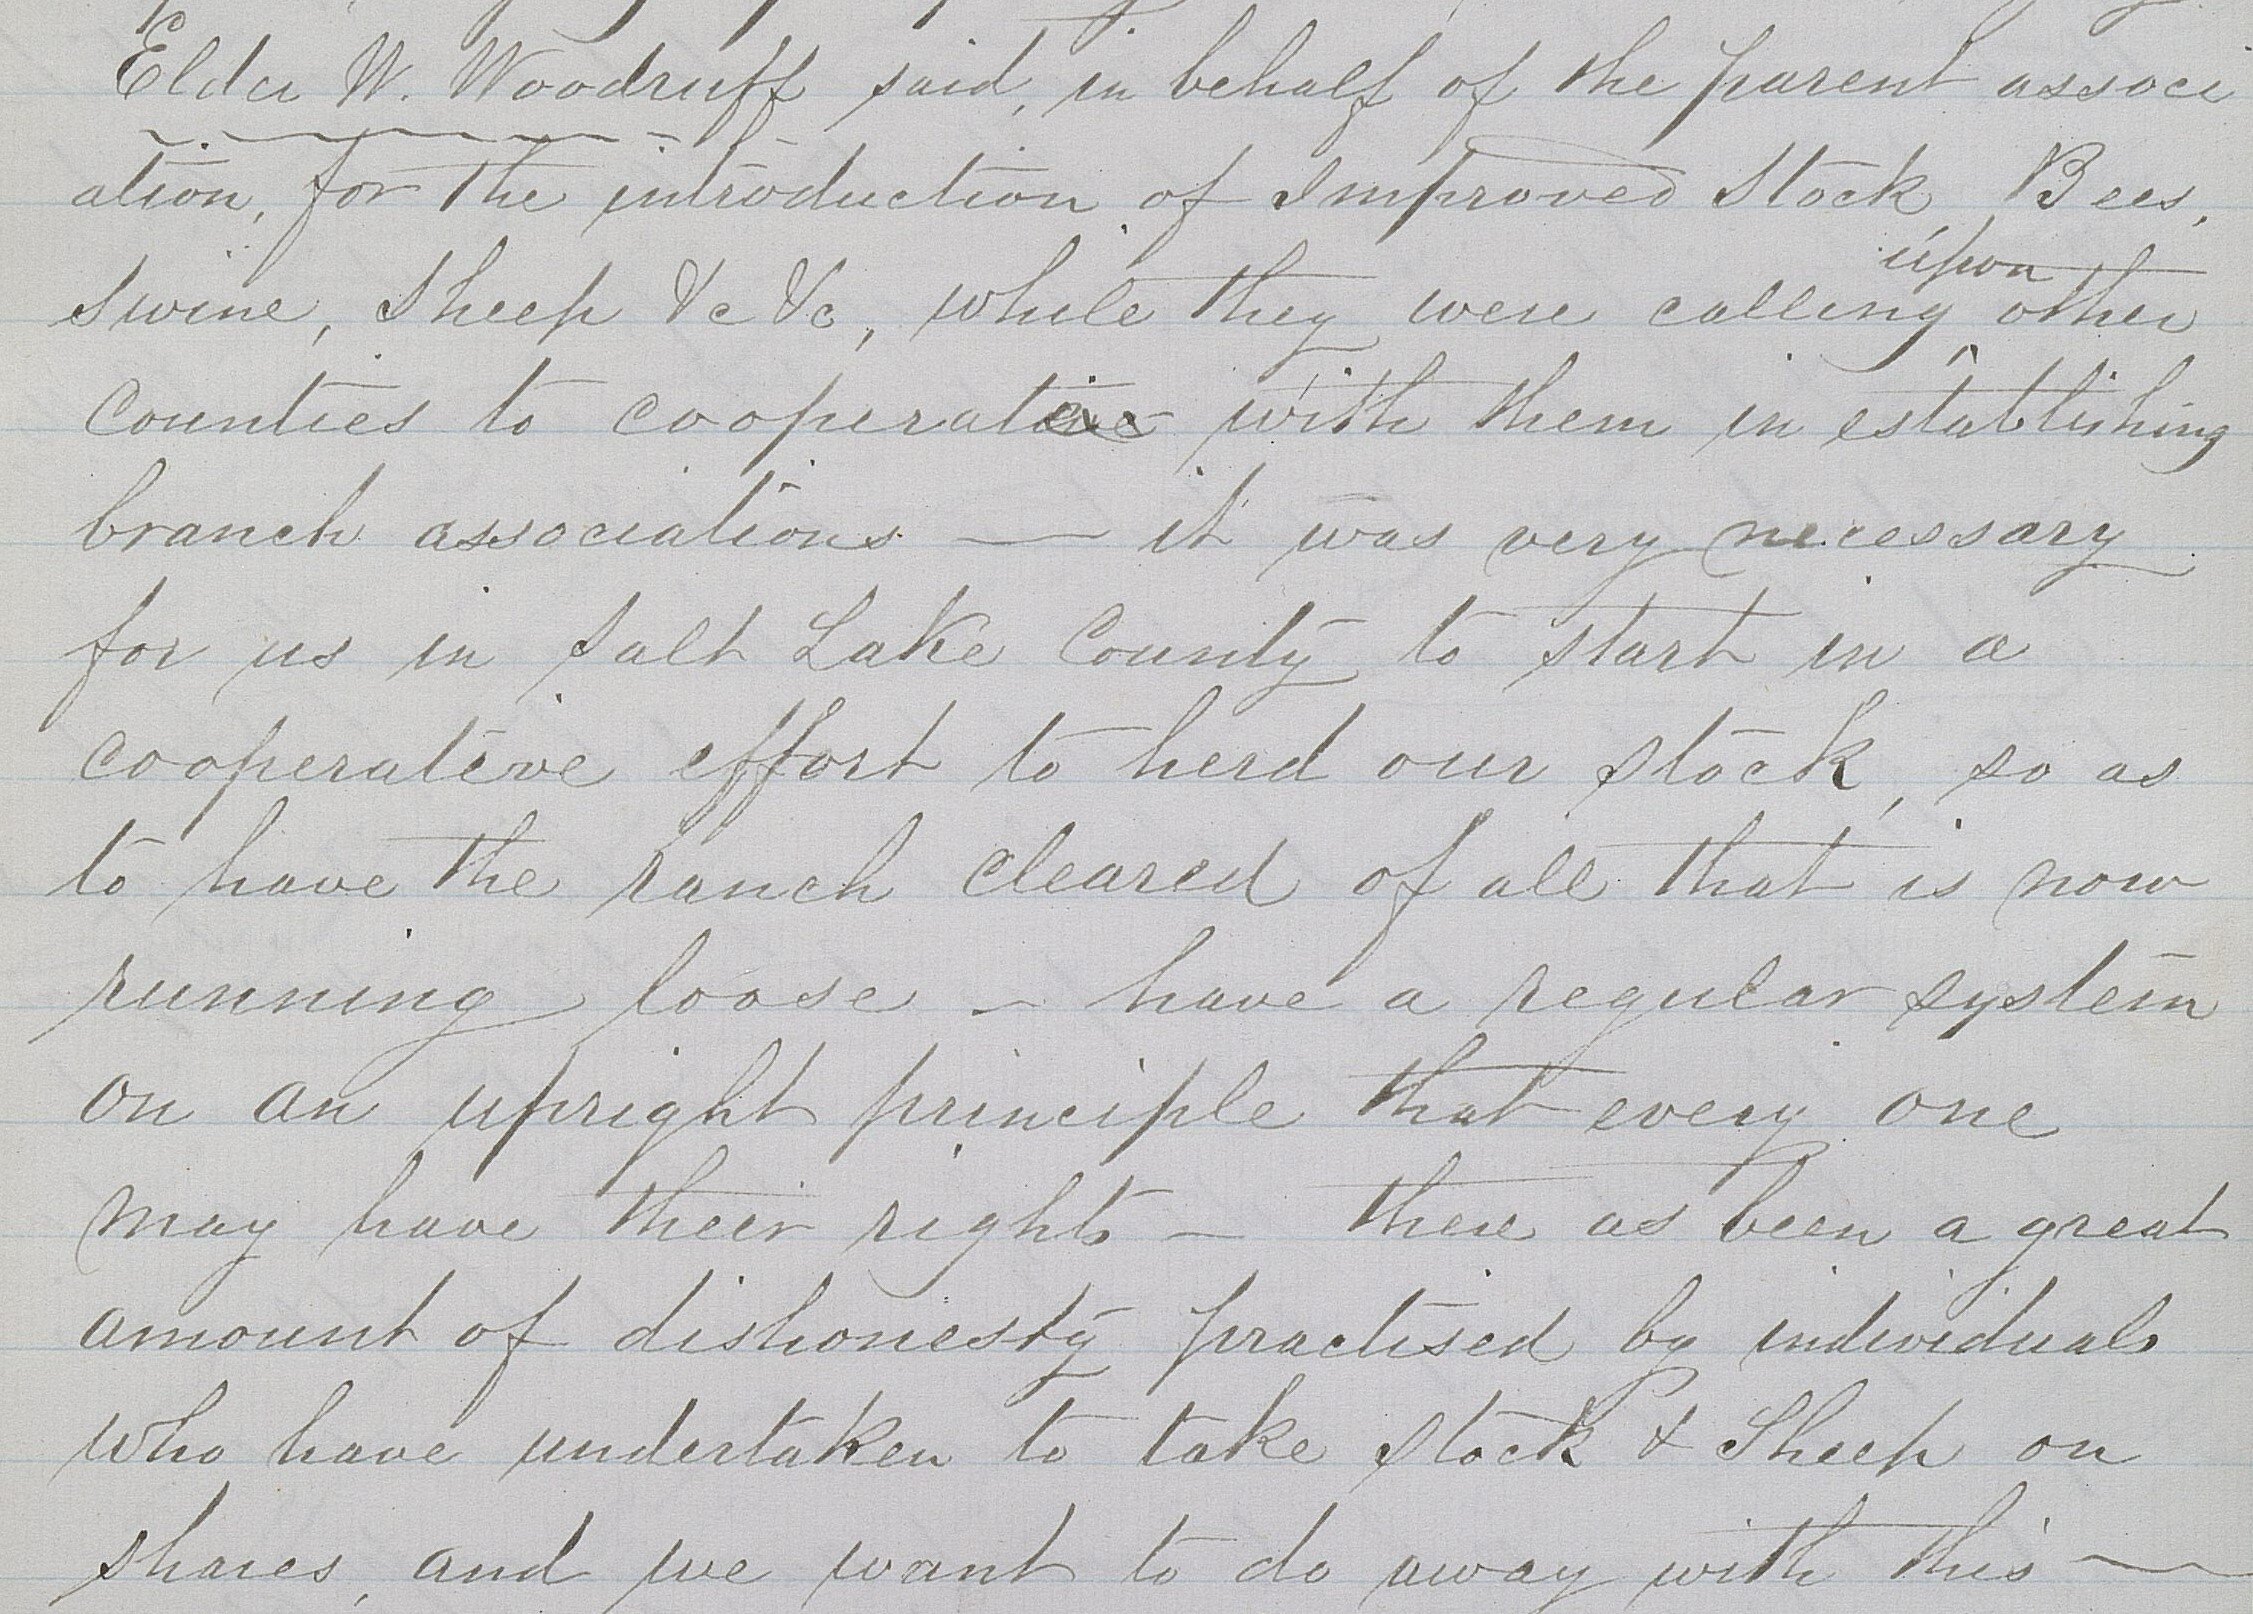 Elder W. Woodruff said, in behalf of the parent associ
ation, for the introduction of Improved Stock, Bees,
Swine, Sheep &c &c, while they were calling upon other
Counties to cooperate with them in establishing
branch associations — it was very necessary
for us in Salt Lake County to start in a
cooperative effort to herd our stock, so as
to have the ranch cleared of all that is now
running loose — have a regular system
on an upright principle that every one
may have their rights — there as been a great
amount of dishonesty practised by individuals
who have undertaken to take stock & Sheep on
shares, and we want to do away with this —